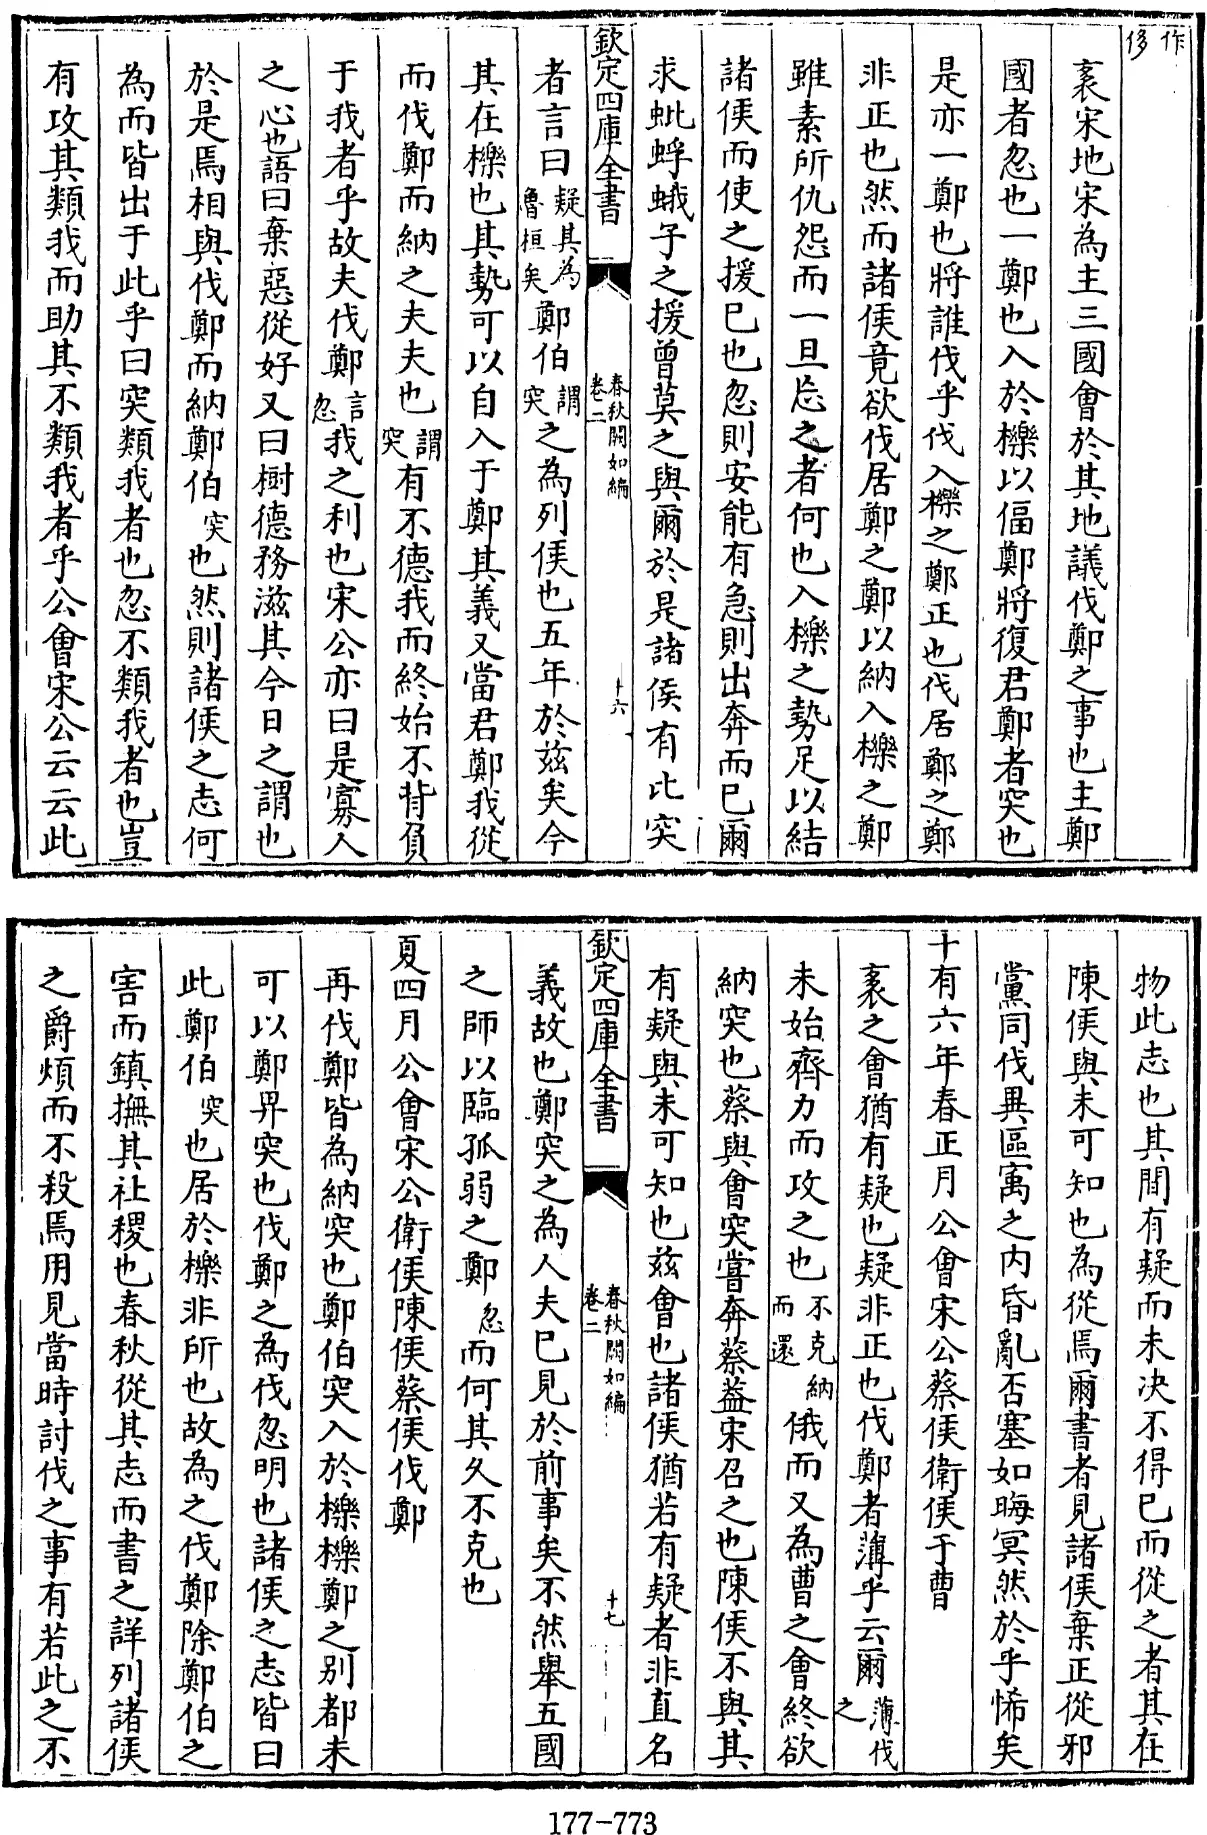 作侈
袤宋地宋為主三國會於其地議伐鄭之事也主鄭
國者忽也一鄭也入於櫟以偪鄭將復君鄭者突也
是亦一鄭也將誰伐乎伐入櫟之鄭正也伐居鄭之鄭
非正也然而諸侯竟欲伐居鄭之鄭以納入櫟之鄭
雖素所仇怨而一旦忘之者何也入櫟之勢足以結
諸侯而使之援已也忽則安能有急則出奔而已爾
求蚍蜉蛾子之援曾莫之與爾於是諸侯有比突
欽定四庫全書
春秋闕如編
卷二
十六
者言曰疑其為魯桓矣鄭伯謂突之為列侯也五年於兹矣今
其在櫟也其勢可以自入于鄭其義又當君鄭我從
而伐鄭而納之夫夫也謂突有不德我而終始不背負
于我者乎故夫伐鄭言忽我之利也宋公亦曰是寡人
之心也語曰棄惡從好又曰樹德務滋其今日之謂也
於是焉相與伐鄭而納鄭伯突也然則諸侯之志何
為而皆出于此乎曰突類我者也忽不類我者也豈
有攻其類我而助其不類我者乎公會宋公云云此
物此志也其間有疑而未决不得已而從之者其在
陳侯與未可知也為從焉爾書者見諸侯棄正從邪
黨同伐異區寓之内昏亂否塞如晦冥然於乎悕矣
十有六年春正月公會宋公蔡侯衛侯于曹
袤之會猶有疑也疑非正也伐鄭者薄乎云爾薄伐之
未始齊力而攻之也不克納而還俄而又為曹之會終欲
納突也蔡與會突嘗奔蔡葢宋召之也陳侯不與其
有疑與未可知也兹會也諸侯猶若有疑者非直名
欽定四庫全書
春秋闕如編
卷二
十七
義故也鄭突之為人夫已見於前事矣不然舉五國
之師以臨孤弱之鄭忽而何其久不克也
夏四月公會宋公衛侯陳侯蔡侯伐鄭
再伐鄭皆為納突也鄭伯突入於櫟櫟鄭之别都未
可以鄭畀突也伐鄭之為伐忽明也諸侯之志皆曰
此鄭伯突也居於櫟非所也故為之伐鄭除鄭伯之
害而鎮撫其社稷也春秋從其志而書之詳列諸侯
之爵煩而不殺焉用見當時討伐之事有若此之不
177-773